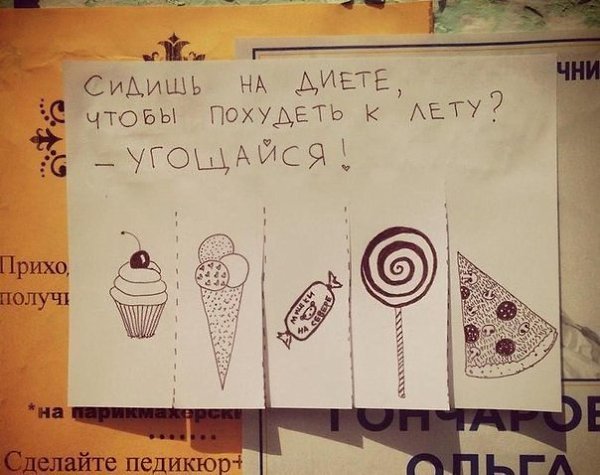 СИДИШЬ НА ДИЕТЕ,
ЧТОБЫ ПОХУДЕТЬ К ЛЕТУ?
– УГОЩАЙСЯ!
МИШКИ
НА СЕВЕРЕ
ЧНИ
Прихо
получи
*на парикмахерск
Сделайте педикюр+
ГОНЧАРОВ
ОЛЬГА